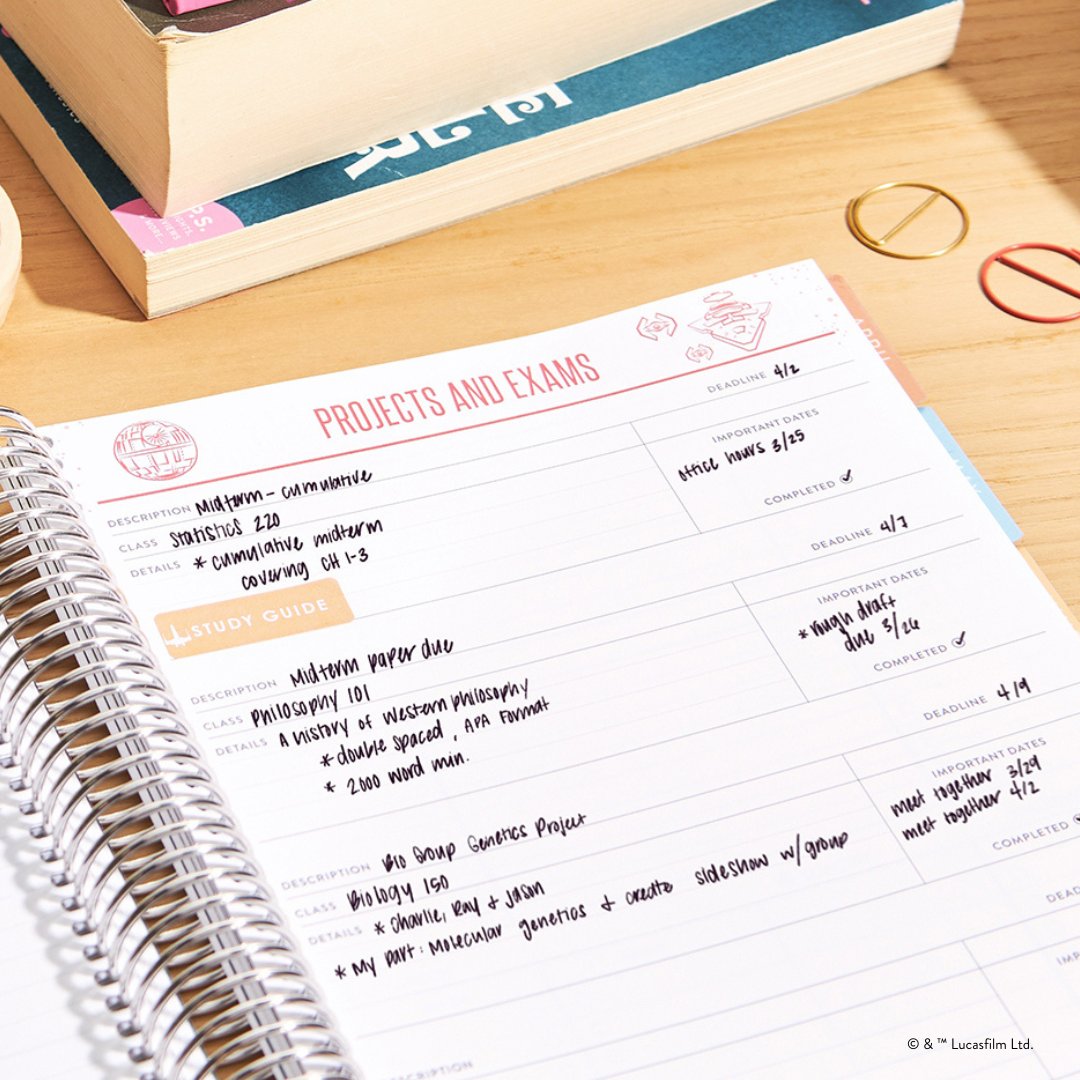 P.S.
PROJECTS AND EXAMS
DEADLINE 4/2
DESCRIPTION Midterm - cumulative
IMPORTANT DATES
CLASS Statistics 220
office hours 3/25
DETAILS * cumulative midterm
covering CH 1-3
COMPLETED ✓
STUDY GUIDE
DEADLINE 4/7
DESCRIPTION Midterm paper due
IMPORTANT DATES
CLASS Philosophy 101
* rough draft
due 3/26
DETAILS A history of Western philosophy
* double spaced, APA Format
* 2000 word min.
COMPLETED ✓
DEADLINE 4/9
DESCRIPTION Bio Group Genetics Project
IMPORTANT DATES
CLASS Biology 150
meet together 3/29
meet together 4/2
DETAILS * Charlie, Ray + Jason
* My part: Molecular genetics + create slideshow w/group
COMPLETED
APRIL
MAY
© & ™ Lucasfilm Ltd.